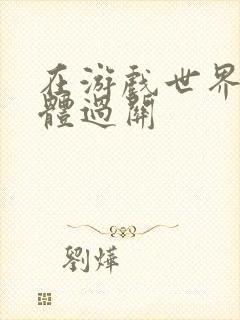 在游戲世界
體過關
劉燁